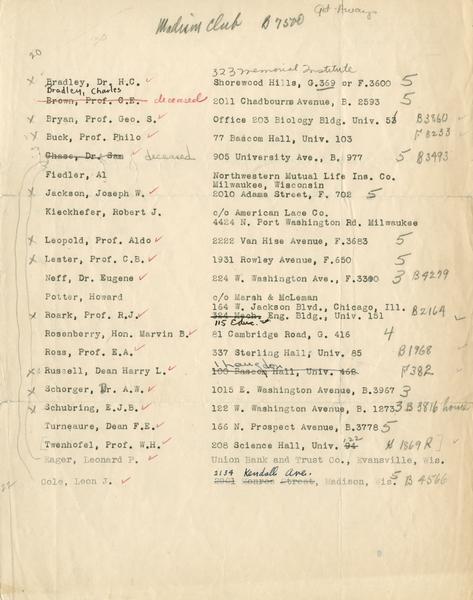 Got-Aways
Madison Club B7500
20
323 Memorial Institute
x Bradley, Dr. H.C. ✓ Shorewood Hills, G.369 or F.3600 5
Bradley, Charles
Brown, Prof. C.E. deceased 2011 Chadbourne Avenue, B. 2593 5
x Bryan, Prof. Geo. S. ✓ Office 203 Biology Bldg. Univ. 53 B3860
x Buck, Prof. Philo ✓ 77 Bascom Hall, Univ. 103 F8233
Chase, Dr. Sam ✓ deceased 905 University Ave., B. 977 5 B3493
Fiedler, Al Northwestern Mutual Life Ins. Co.
Milwaukee, Wisconsin
x Jackson, Joseph W. ✓ 2010 Adams Street, F. 702 5
Kieckhefer, Robert J. c/o American Lace Co.
4424 N. Port Washington Rd. Milwaukee
x Leopold, Prof. Aldo ✓ 2222 Van Hise Avenue, F.3683 5
x Lester, Prof. C.B. ✓ 1931 Rowley Avenue, F.650 5
Neff, Dr. Eugene ✓ 224 W. Washington Ave., F.3300 3 B4279
Potter, Howard c/o Marsh & McLeman
164 W. Jackson Blvd., Chicago, Ill.
x Roark, Prof. R.J. ✓ 324 Mech. Eng. Bldg., Univ. 151 B2164
115 Educ.
Rosenberry, Hon. Marvin B. ✓ 81 Cambridge Road, G. 416 4
Ross, Prof. E.A. ✓ 337 Sterling Hall; Univ. 85 B1968
1 Langdon
x Russell, Dean Harry L. ✓ 100 Bascom Hall, Univ. 168 F382
x Schorger, Dr. A.W. ✓ 1015 E. Washington Avenue, B.3967 3
x Schubring, E.J.B. ✓ 122 W. Washington Avenue, B. 1273 3 B3816 house
Turneaure, Dean F.E. ✓ 166 N. Prospect Avenue, B.3778 5
Twenhofel, Prof. W.H. ✓ 208 Science Hall, Univ. 94 122 H 1869R
Eager, Leonard P. ✓ Union Bank and Trust Co., Evansville, Wis.
2134 Kendall Ave.
22 Cole, Leon J. ✓ 2001 Monroe Street, Madison, Wis. 5 B4566